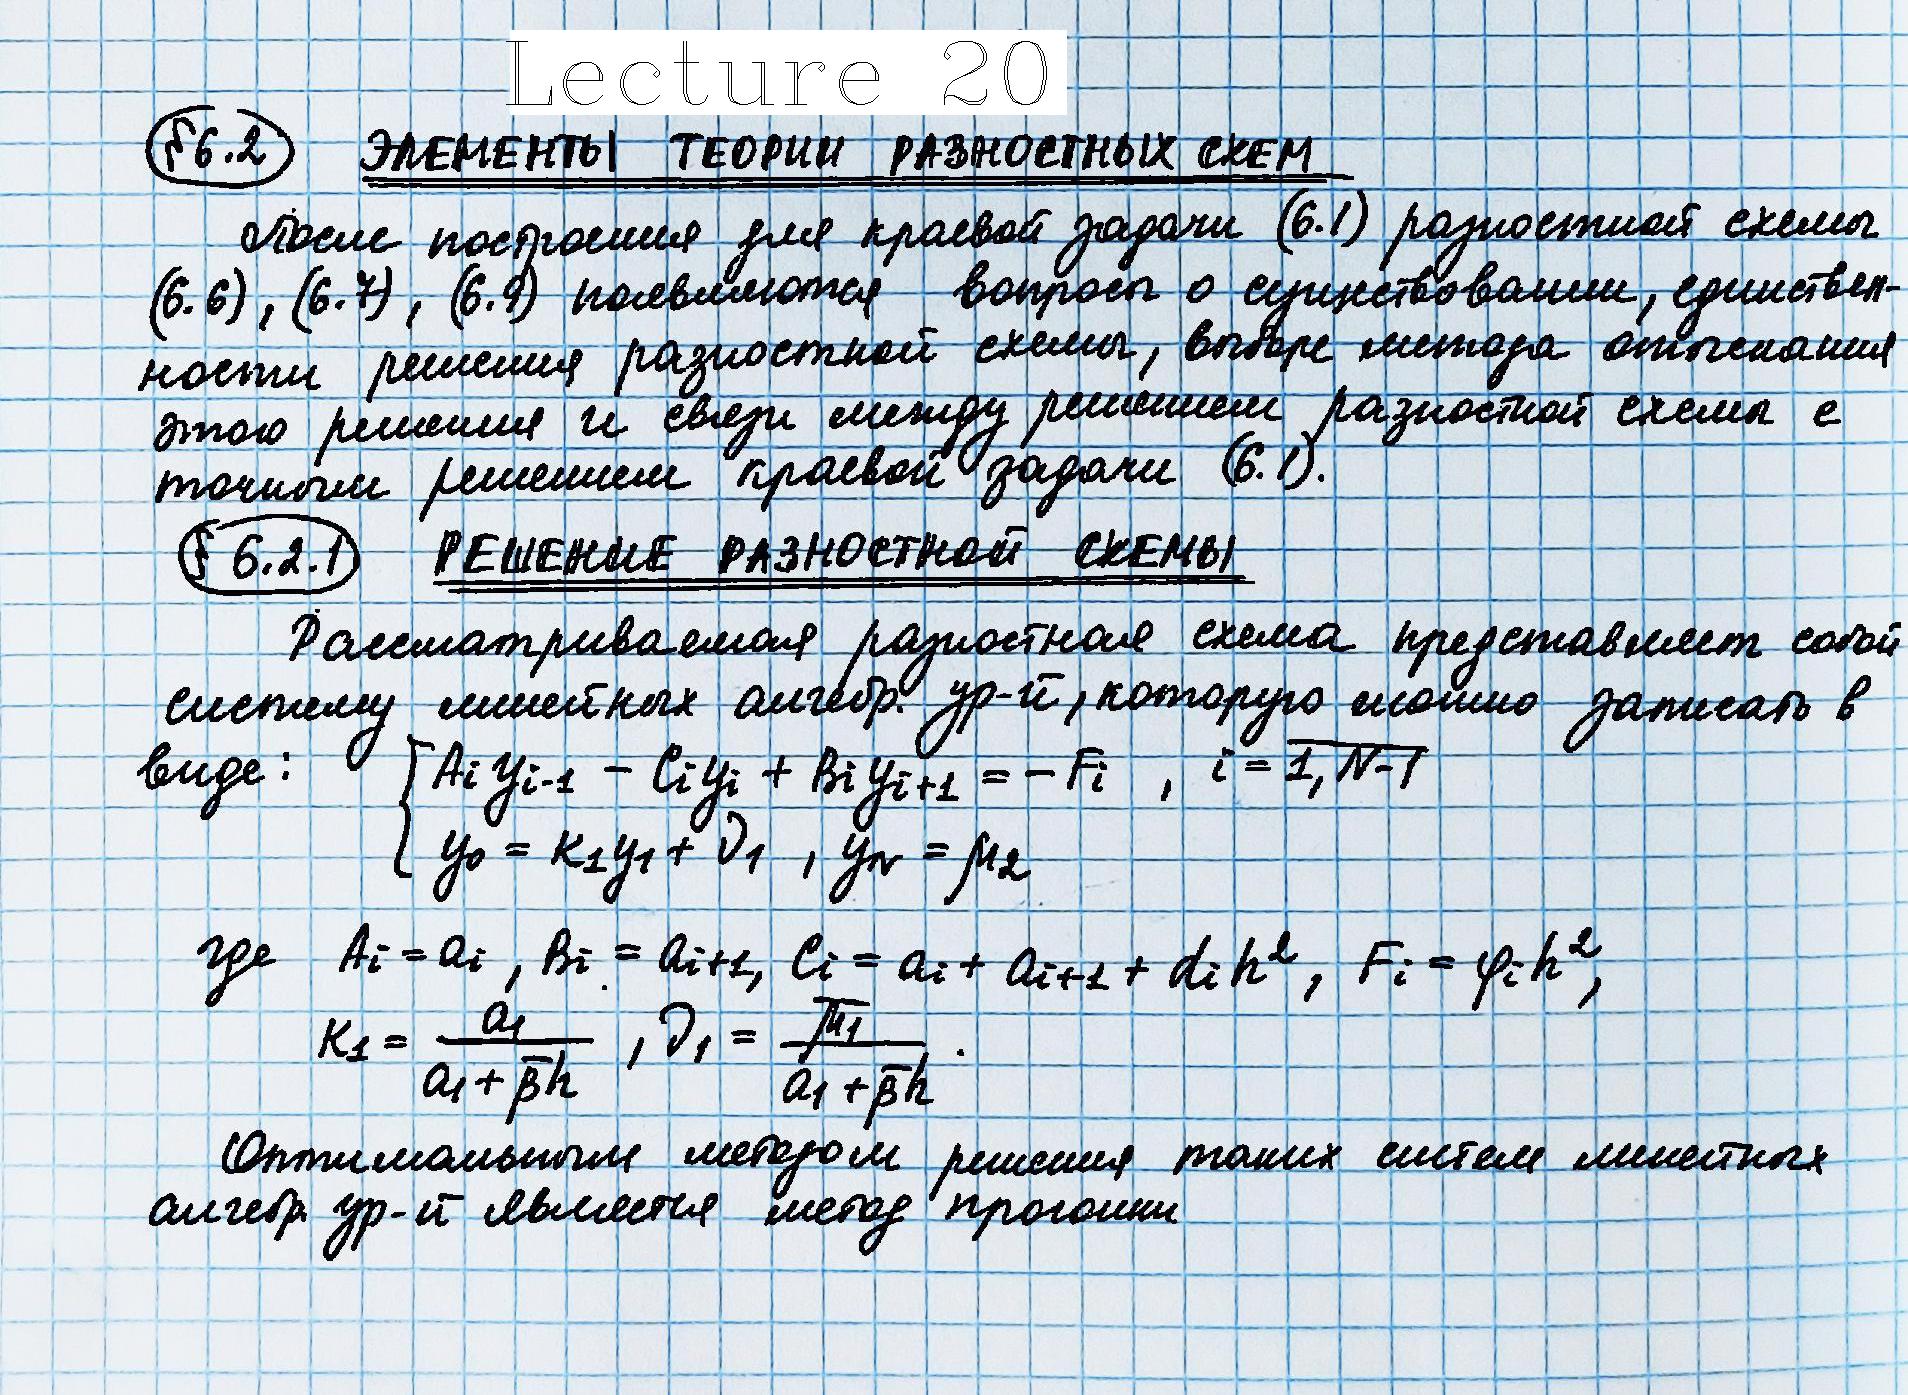 Lecture 20
§6.2 ЭЛЕМЕНТЫ ТЕОРИИ РАЗНОСТНЫХ СХЕМ
После построения для краевой задачи (6.1) разностной схемы
(6.6), (6.7), (6.9) появляются вопросы о существовании, единствен-
ности решения разностной схемы, выборе метода отыскания
этого решения и связи между решением разностной схемы с
точным решением краевой задачи (6.1).
§ 6.2.1 РЕШЕНИЕ РАЗНОСТНОЙ СХЕМЫ
Рассматриваемая разностная схема представляет собой
систему линейных алгебр. ур-й, которую можно записать в
виде: { Aᵢyᵢ₋₁ − Cᵢyᵢ + Bᵢyᵢ₊₁ = −Fᵢ , i = \overline{1, N−1}
y₀ = κ₁y₁ + ν₁ , y_N = μ₂
где Aᵢ = aᵢ , Bᵢ = aᵢ₊₁, Cᵢ = aᵢ + aᵢ₊₁ + dᵢh², Fᵢ = φᵢh²,
κ₁ = a₁/(a₁ + β̄h) , ν₁ = μ̄₁/(a₁ + β̄h) .
Оптимальным методом решения таких систем линейных
алгебр. ур-й является метод прогонки